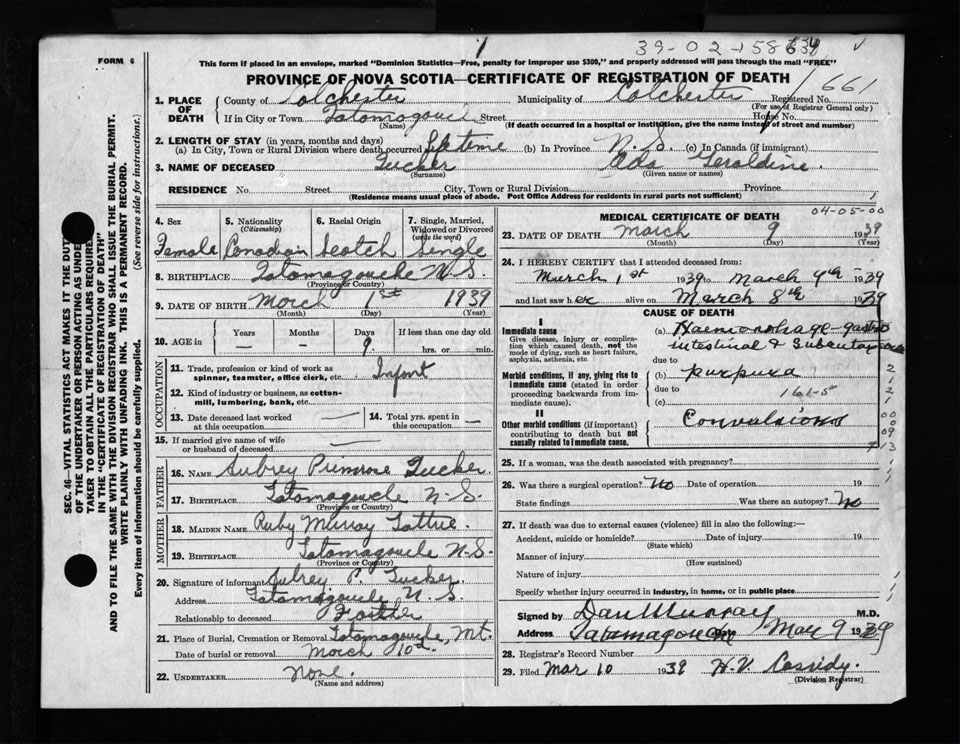 39-02-158634
FORM 6
This form if placed in an envelope, marked "Dominion Statistics—Free, penalty for improper use $300," and properly addressed will pass through the mail "FREE"
PROVINCE OF NOVA SCOTIA—CERTIFICATE OF REGISTRATION OF DEATH
1. PLACE OF DEATH County of Colchester Municipality of Colchester Registered No. 661
(For use of Registrar General only)
If in City or Town Tatamagouche Street House No.
(Name) (If death occurred in a hospital or institution, give the name instead of street and number)
2. LENGTH OF STAY (in years, months and days)
(a) In City, Town or Rural Division where death occurred Lifetime (b) In Province N. S. (c) In Canada (if immigrant)
3. NAME OF DECEASED Tucker Ada Geraldine.
(Surname) (Given name or names)
RESIDENCE No. Street City, Town or Rural Division Province
(Residence means usual place of abode. Post Office Address for residents in rural parts not sufficient)
SEC. 46—VITAL STATISTICS ACT MAKES IT THE DUTY
OF THE UNDERTAKER OR PERSON ACTING AS UNDER
TAKER TO OBTAIN ALL THE PARTICULARS REQUIRED
IN THE "CERTIFICATE OF REGISTRATION OF DEATH"
AND TO FILE THE SAME WITH THE DIVISION REGISTRAR WHO SHALL ISSUE THE BURIAL PERMIT.
WRITE PLAINLY WITH UNFADING INK. THIS IS A PERMANENT RECORD.
Every item of information should be carefully supplied. (See reverse side for instructions.)
4. Sex 5. Nationality (Citizenship) 6. Racial Origin 7. Single, Married, Widowed or Divorced (write the word)
Female Canadian Scotch Single
8. BIRTHPLACE Tatamagouche N.S.
(Province or Country)
9. DATE OF BIRTH March 1st 1939
(Month) (Day) (Year)
10. AGE in Years — Months — Days 9 If less than one day old hrs. or min.
OCCUPATION
11. Trade, profession or kind of work as spinner, teamster, office clerk, etc. Infant
12. Kind of industry or business, as cotton-mill, lumbering, bank, etc.
13. Date deceased last worked at this occupation — 14. Total yrs. spent in this occupation —
15. If married give name of wife or husband of deceased —
FATHER
16. NAME Aubrey Primrose Tucker
17. BIRTHPLACE Tatamagouche N.S.
(Province or Country)
MOTHER
18. MAIDEN NAME Ruby Murray Tattrie.
19. BIRTHPLACE Tatamagouche N.S.
(Province or Country)
20. Signature of informant Aubrey P. Tucker.
Address Tatamagouche N. S.
Relationship to deceased Father
21. Place of Burial, Cremation or Removal Tatamagouche, Mt.
Date of burial or removal March 10th
22. UNDERTAKER None.
(Name and address)
MEDICAL CERTIFICATE OF DEATH
04-05-00
23. DATE OF DEATH March 9 1939
(Month) (Day) (Year)
24. I HEREBY CERTIFY that I attended deceased from:
March 1st 1939 to March 9th 1939
and last saw her alive on March 8th 1939
CAUSE OF DEATH
I
Immediate cause
Give disease, injury or complication which caused death, not the mode of dying, such as heart failure, asphyxia, asthenia, etc
(a) Haemorrhage - gastro
intestinal &
due to
Morbid conditions, if any, giving rise to immediate cause (stated in order proceeding backwards from immediate cause).
(b) purpura
due to
161-5
(c)
II
Other morbid conditions (if important) contributing to death but not causally related to immediate cause.
Convulsions
25. If a woman, was the death associated with pregnancy?
26. Was there a surgical operation? No Date of operation 19
State findings Was there an autopsy? No
27. If death was due to external causes (violence) fill in also the following:—
Accident, suicide or homicide? Date of injury 19
(State which)
Manner of injury
(How sustained)
Nature of injury
Specify whether injury occurred in industry, in home, or in public place
Signed by Dan Murray M.D.
Address Tatamagouche Mar 9 1939
28. Registrar's Record Number
29. Filed Mar 10 1939 H.V. Cassidy.
(Division Registrar)